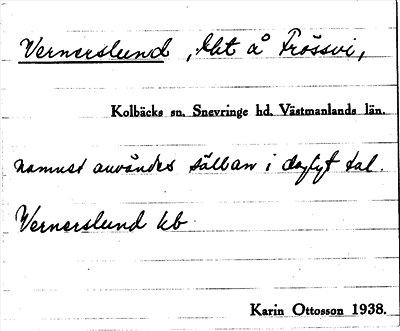 Vernerslund, lht å Frössvi,
Kolbäcks sn. Snevringe hd. Västmanlands län.
namnet användes sällan i dagligt tal.
Vernerslund kb
Karin Ottosson 1938.